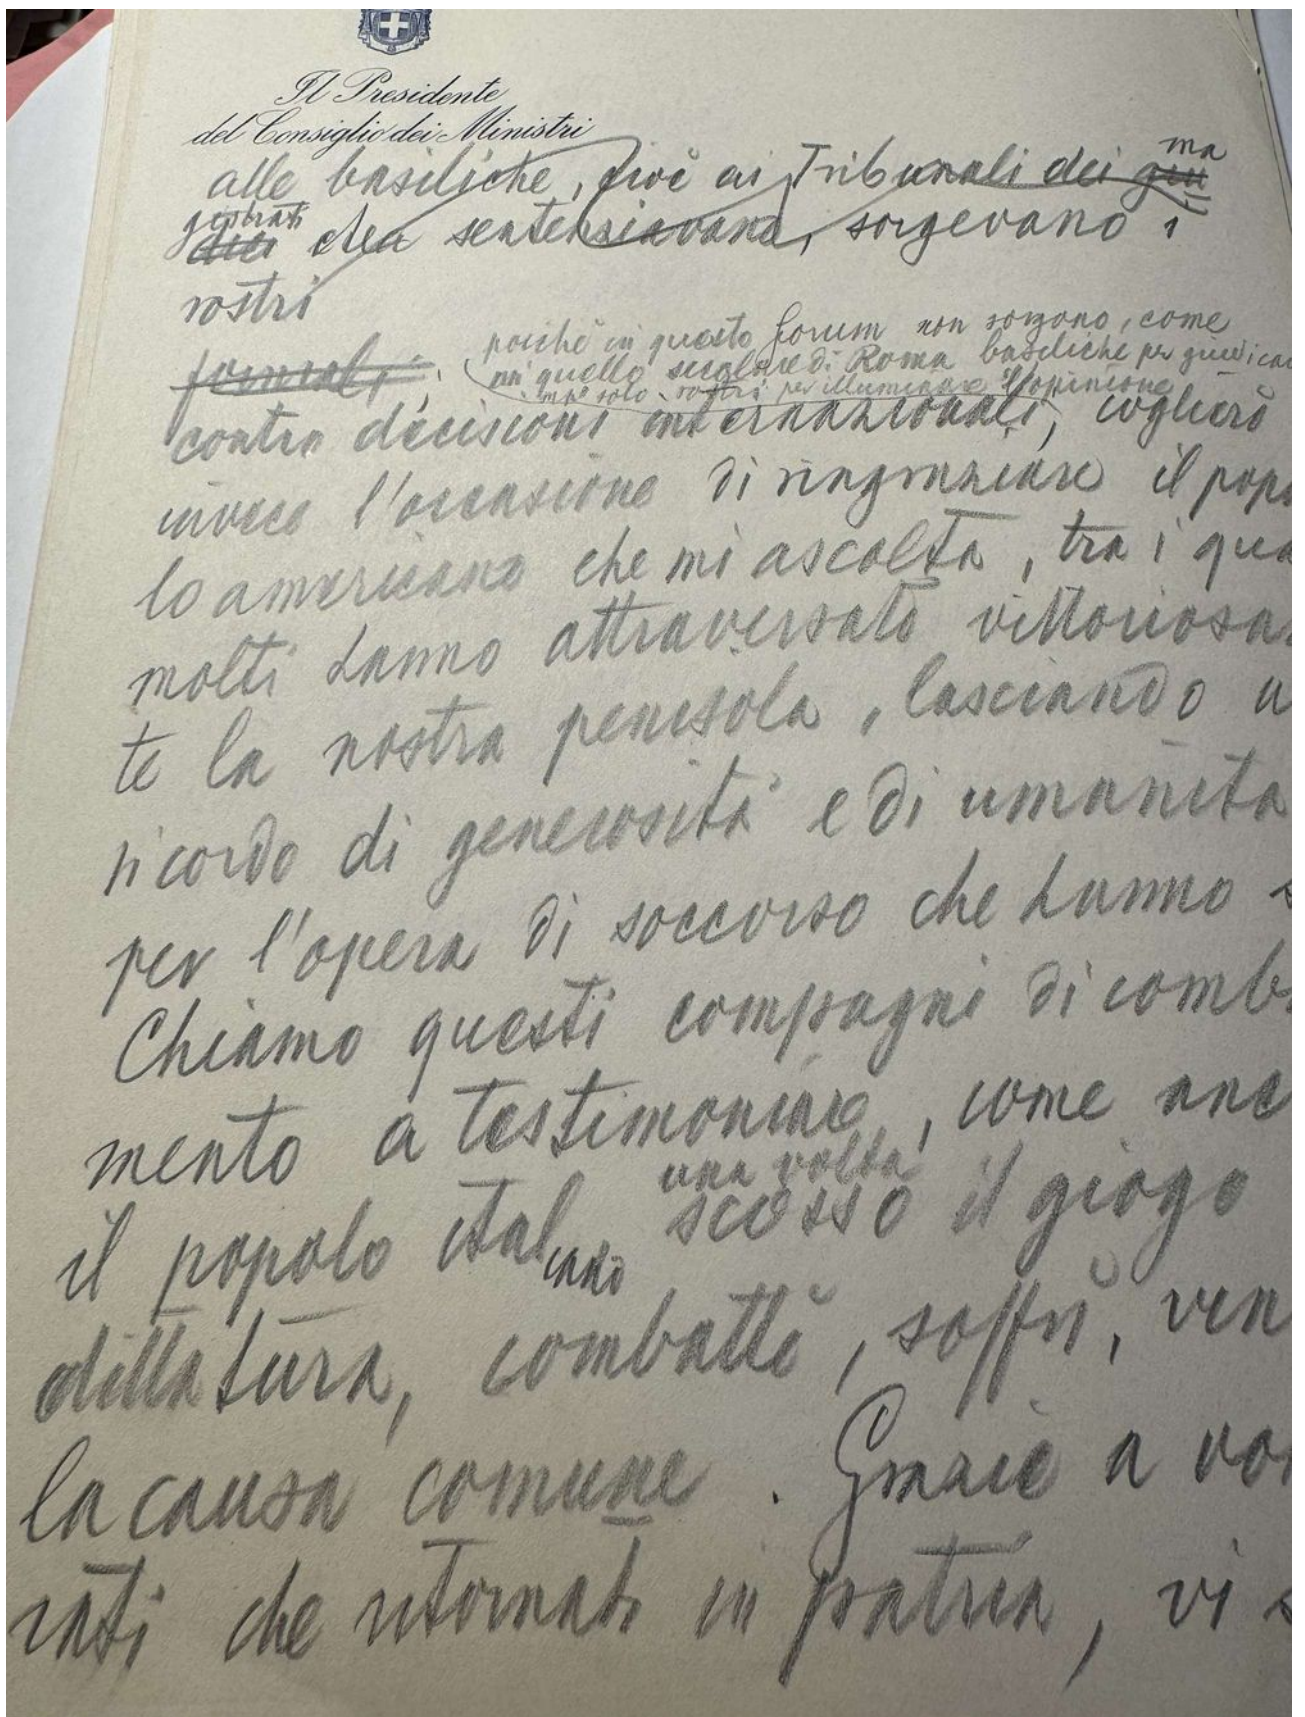 Il Presidente
del Consiglio dei Ministri
ma
alle basiliche, cioè ai Tribunali dei giu
gistrati
dici che sentenziavano, sorgevano i
rostri
poichè in questo forum non sorgono, come
in quello secolare di Roma basiliche per giudicar
ma solo rostri per illuminare l'opinione
contro decisioni internazionali, coglierò
invece l'occasione di ringraziare il popo
lo americano che mi ascolta, tra i qua
molti hanno attraversato vittoriosa
te la nostra penisola, lasciando u
ricordo di generosità e di umanità
per l'opera di soccorso che hanno s
Chiamo questi compagni di comb
mento a testimoniare, come anc
una volta
il popolo italiano scosso il giogo
dittatura, combattè, soffrì, ven
la causa comune. Grazie a voi
rati che ritornati in patria, vi s